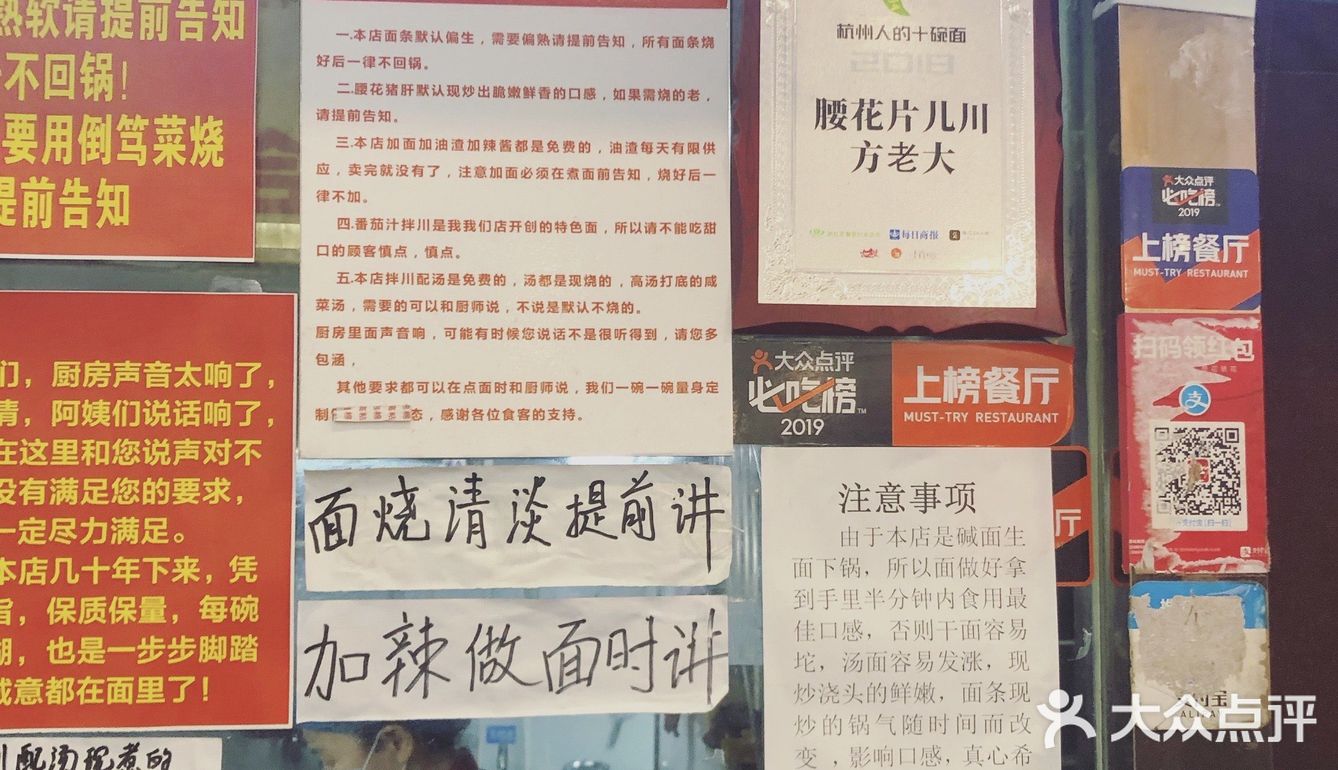 熟软请提前告知
不回锅!
要用倒笃菜烧
提前告知
们，厨房声音太响了，
请，阿姨们说话响了，
在这里和您说声对不
没有满足您的要求，
一定尽力满足。
本店几十年下来，凭
旨，保质保量，每碗
也是一步步脚踏
诚意都在面里了！
配汤现煮的
一.本店面条默认偏生，需要偏熟请提前告知，所有面条烧
好后一律不回锅。
二.腰花猪肝默认现炒出脆嫩鲜香的口感，如果需烧的老，
请提前告知。
三.本店加面加油渣加辣酱都是免费的，油渣每天有限供
应，卖完就没有了，注意加面必须在煮面前告知，烧好后一
律不加。
四.番茄汁拌川是我我们店开创的特色面，所以请不能吃甜
口的顾客慎点，慎点。
五.本店拌川配汤是免费的，汤都是现烧的，高汤打底的咸
菜汤，需要的可以和厨师说，不说是默认不烧的。
厨房里面声音响，可能有时候您说话不是很听得到，请您多
包涵，
其他要求都可以在点面时和厨师说，我们一碗一碗量身定
制 态，感谢各位食客的支持。
面烧清淡提前讲
加辣做面时讲
杭州人的十碗面
2018
腰花片儿川
方老大
每日商报
大众点评
必吃榜™
2019
上榜餐厅
MUST-TRY RESTAURANT
注意事项
由于本店是碱面生
面下锅，所以面做好拿
到手里半分钟内食用最
佳口感，否则干面容易
坨，汤面容易发涨，现
炒浇头的鲜嫩，面条现
炒的锅气随时间而改
变，影响口感，真心希
厅
大众点评
必吃榜™
2019
上榜餐厅
MUST-TRY RESTAURANT
扫码领红包
支
大众点评